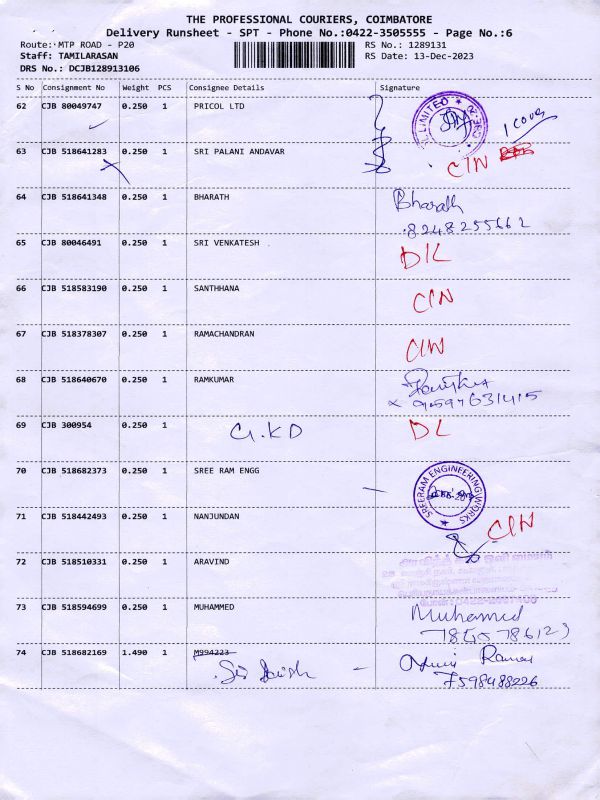 THE PROFESSIONAL COURIERS, COIMBATORE
Delivery Runsheet - SPT - Phone No.:0422-3505555 - Page No.:6
Route: MTP ROAD - P20 RS No.: 1289131
Staff: TAMILARASAN RS Date: 13-Dec-2023
DRS No.: DCJB128913106
S No Consignment No Weight PCS Consignee Details Signature
62 CJB 80049747 0.250 1 PRICOL LTD
LIMITED
1 Cover
63 CJB 518641283 0.250 1 SRI PALANI ANDAVAR CIN
64 CJB 518641348 0.250 1 BHARATH Bharath
8248255662
65 CJB 80046491 0.250 1 SRI VENKATESH D/L
66 CJB 518583190 0.250 1 SANTHHANA CIN
67 CJB 518378307 0.250 1 RAMACHANDRAN CIN
68 CJB 518640670 0.250 1 RAMKUMAR
69 CJB 300954 0.250 1 G.KD DL
70 CJB 518682373 0.250 1 SREE RAM ENGG
SREERAM ENGINEERING WORKS
71 CJB 518442493 0.250 1 NANJUNDAN CIN
72 CJB 518510331 0.250 1 ARAVIND
73 CJB 518594699 0.250 1 MUHAMMED Muhamed
74 CJB 518682169 1.490 1 M994223
7598488226